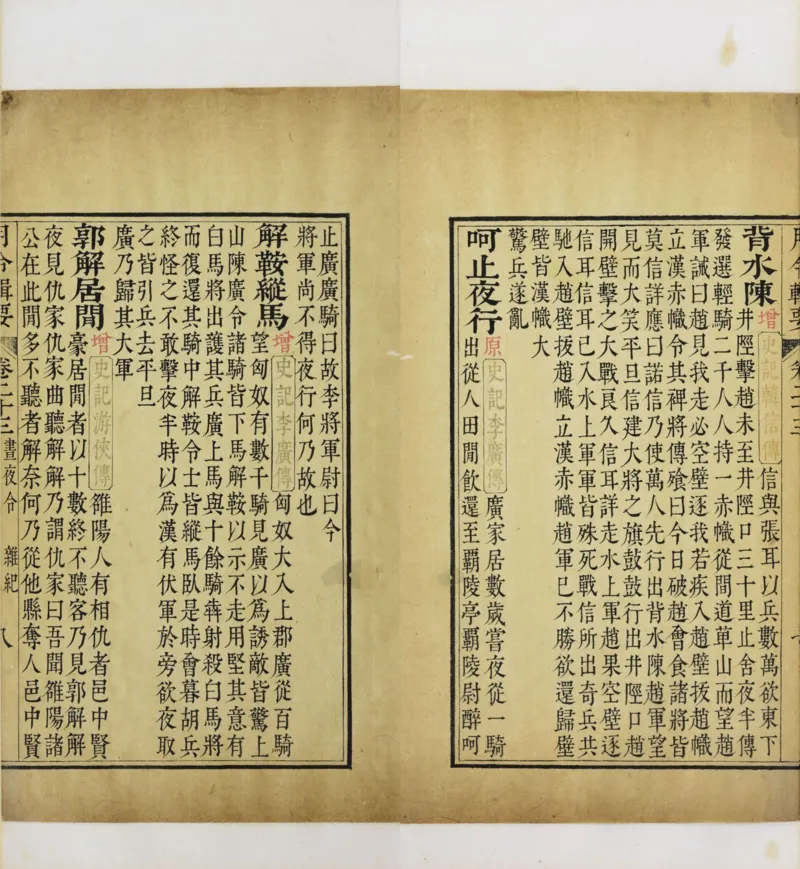 月令輯要 卷二十三 七
背水陳 增 史記韓信傳 信與張耳以兵數萬欲東下
井陘擊趙未至井陘口三十里止舍夜半傳
發選輕騎二千人人持一赤幟從間道萆山而望趙
軍誡曰趙見我走必空壁逐我若疾入趙壁拔趙幟
立漢赤幟令其裨將傳飱曰今日破趙會食諸將皆
莫信詳應曰諾信乃使萬人先行出背水陳趙軍望
見而大笑平旦信建大將之旗鼓鼓行出井陘口趙
開壁擊之大戰良久信耳詳走水上軍趙果空壁逐
信耳信耳已入水上軍軍皆殊死戰信所出奇兵共
馳入趙壁拔趙幟立漢赤幟趙軍已不勝欲還歸壁
壁皆漢幟大
驚兵遂亂
呵止夜行 原 史記李廣傳 廣家居數歲嘗夜從一騎
出從人田閒飲還至覇陵亭覇陵尉醉呵
止廣廣騎曰故李將軍尉曰今
將軍尚不得夜行何乃故也
解鞍縱馬 增 史記李廣傳 匈奴大入上郡廣從百騎
望匈奴有數千騎見廣以爲誘敵皆驚上
山陳廣令諸騎皆下馬解鞍以示不走用堅其意有
白馬將出護其兵廣上馬與十餘騎犇射殺白馬將
而復還其騎中解鞍令士皆縱馬臥是時會暮胡兵
終怪之不敢擊夜半時以爲漢有伏軍於旁欲夜取
之皆引兵去平旦
廣乃歸其大軍
郭解居閒 增 史記游俠傳 雒陽人有相仇者邑中賢
豪居閒者以十數終不聽客乃見郭解解
夜見仇家仇家曲聽解解乃謂仇家曰吾聞雒陽諸
公在此閒多不聽者解奈何乃從他縣奪人邑中賢
月令輯要 卷二十三 晝夜令 雜紀 八